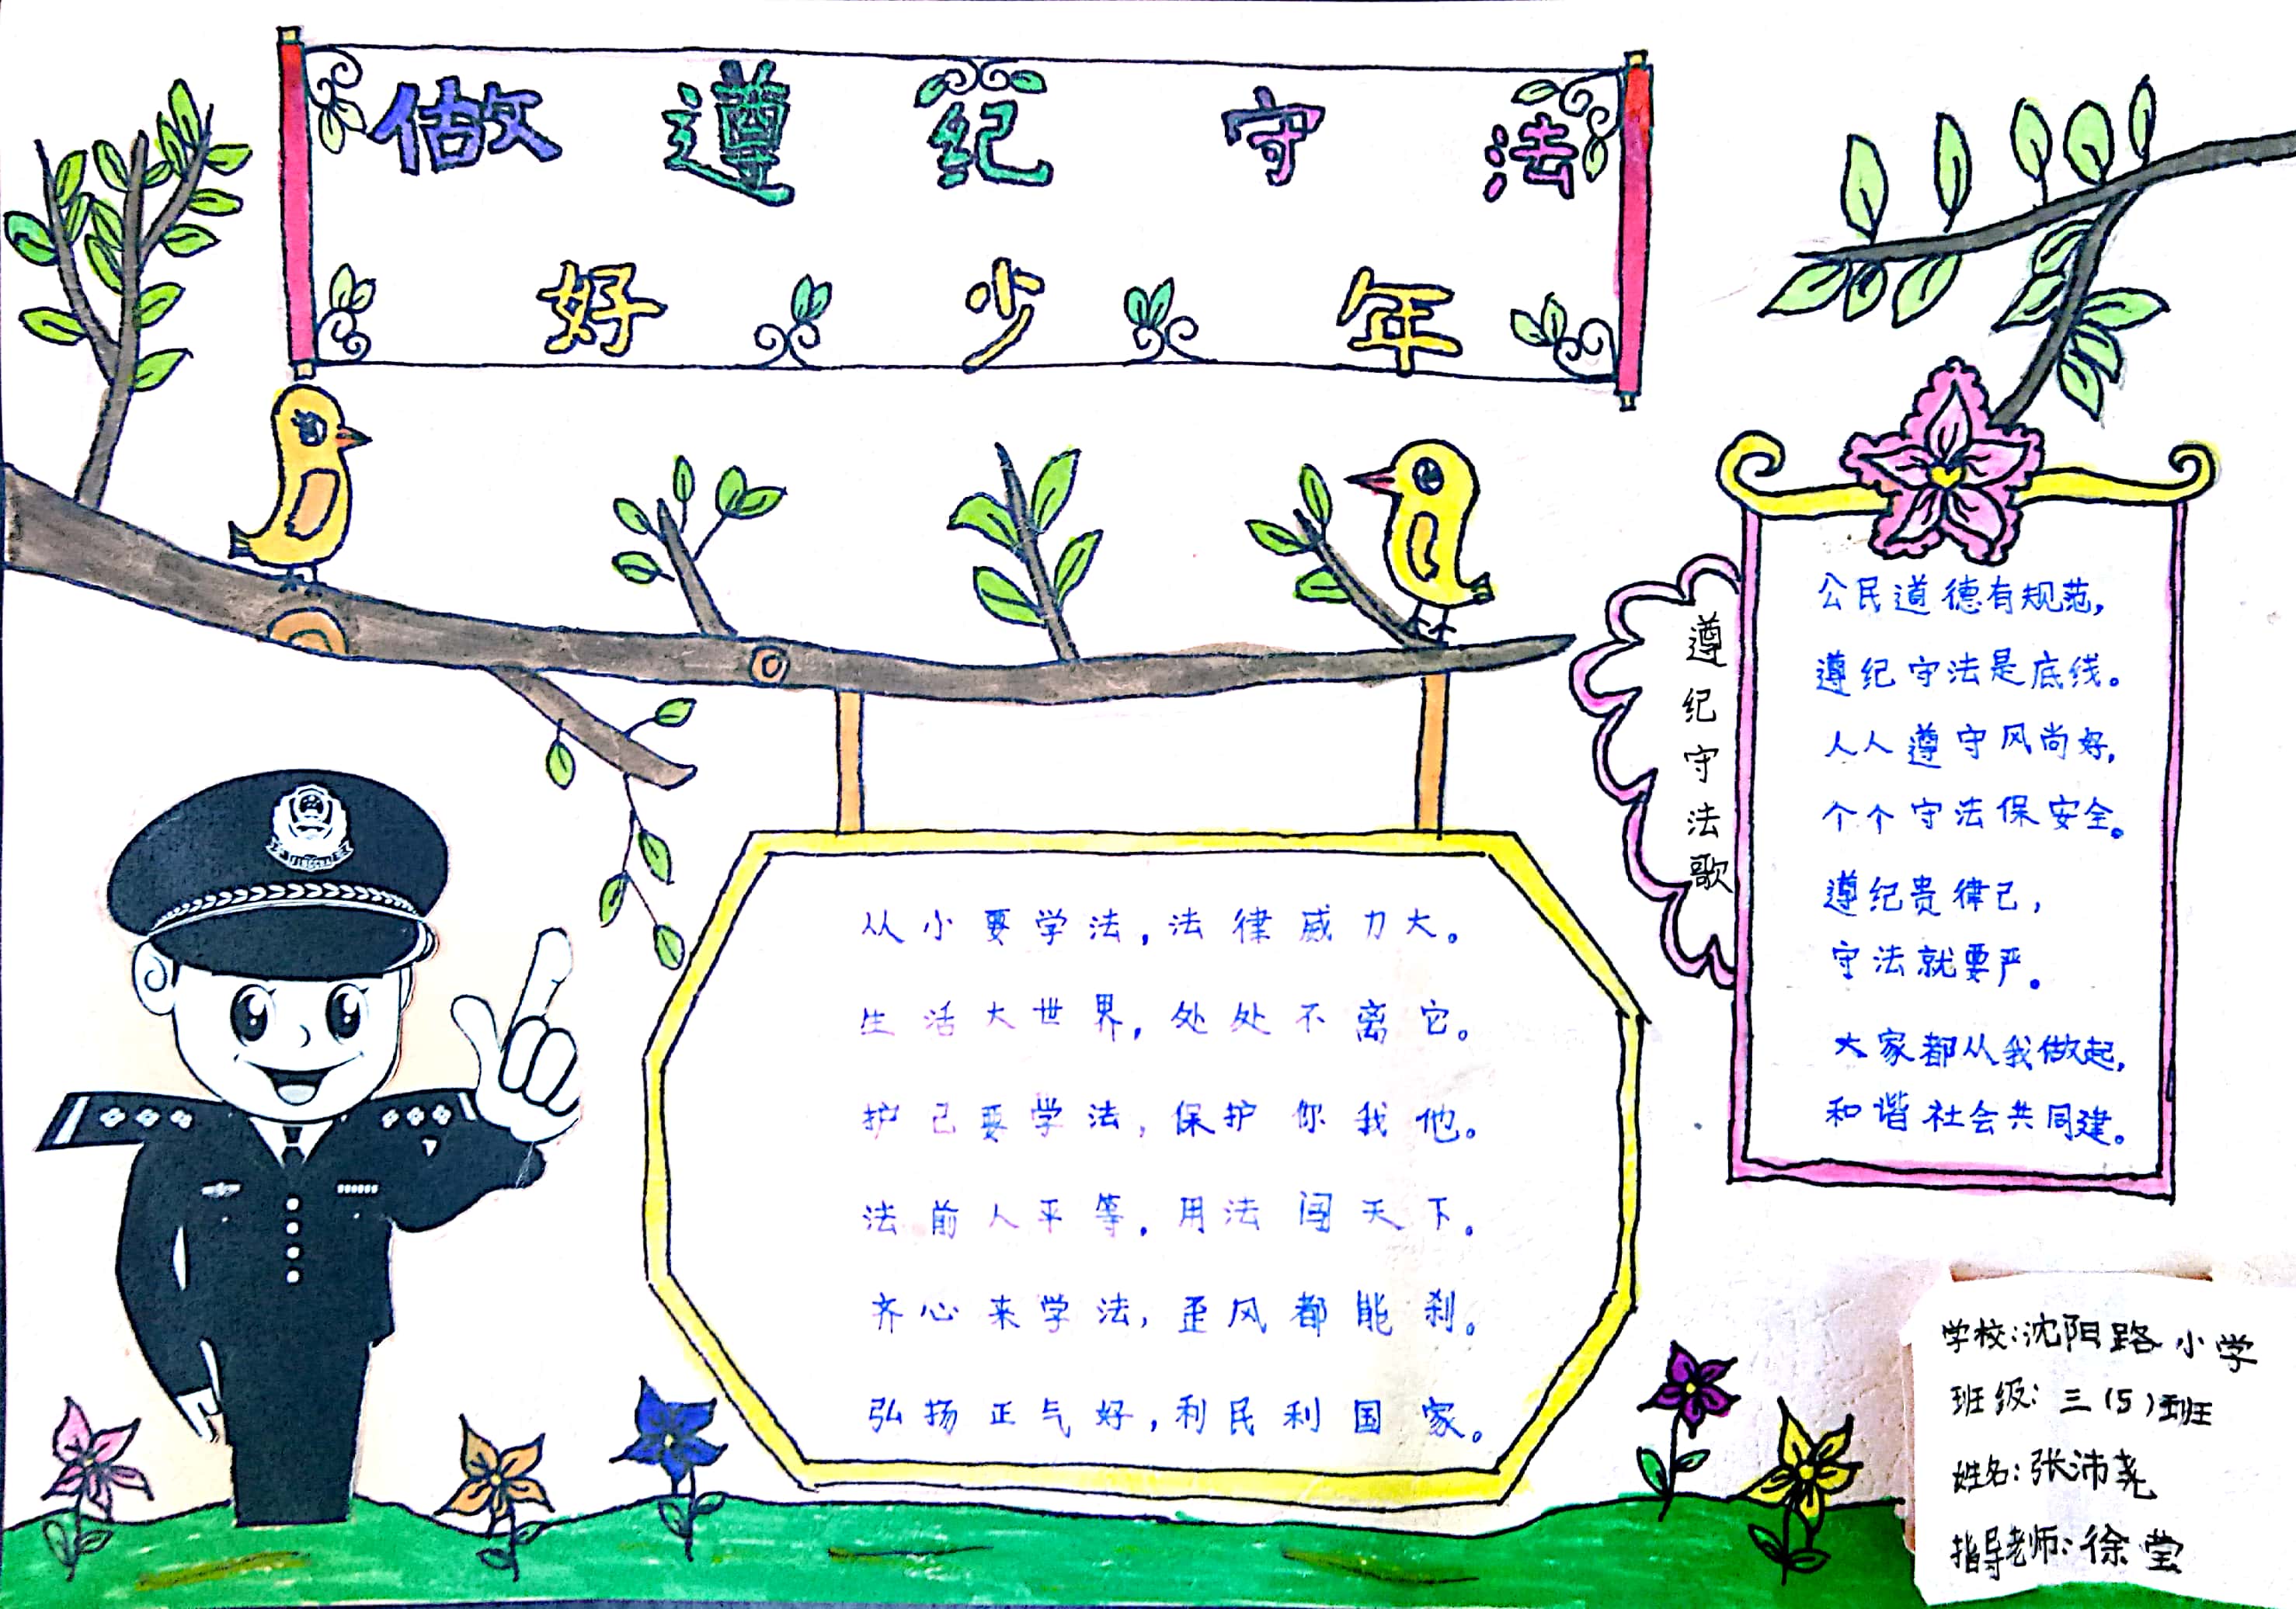 做遵纪守法
好少年
遵纪守法歌
公民道德有规范，
遵纪守法是底线。
人人遵守风尚好，
个个守法保安全。
遵纪贵律己，
守法就要严。
大家都从我做起，
和谐社会共同建。
从小要学法，法律威力大。
生活大世界，处处不离它。
护己要学法，保护你我他。
法前人平等，用法闯天下。
齐心来学法，歪风都能刹。
弘扬正气好，利民利国家。
学校：沈阳路小学
班级：三（5）班
姓名：张沛尧
指导老师：徐莹